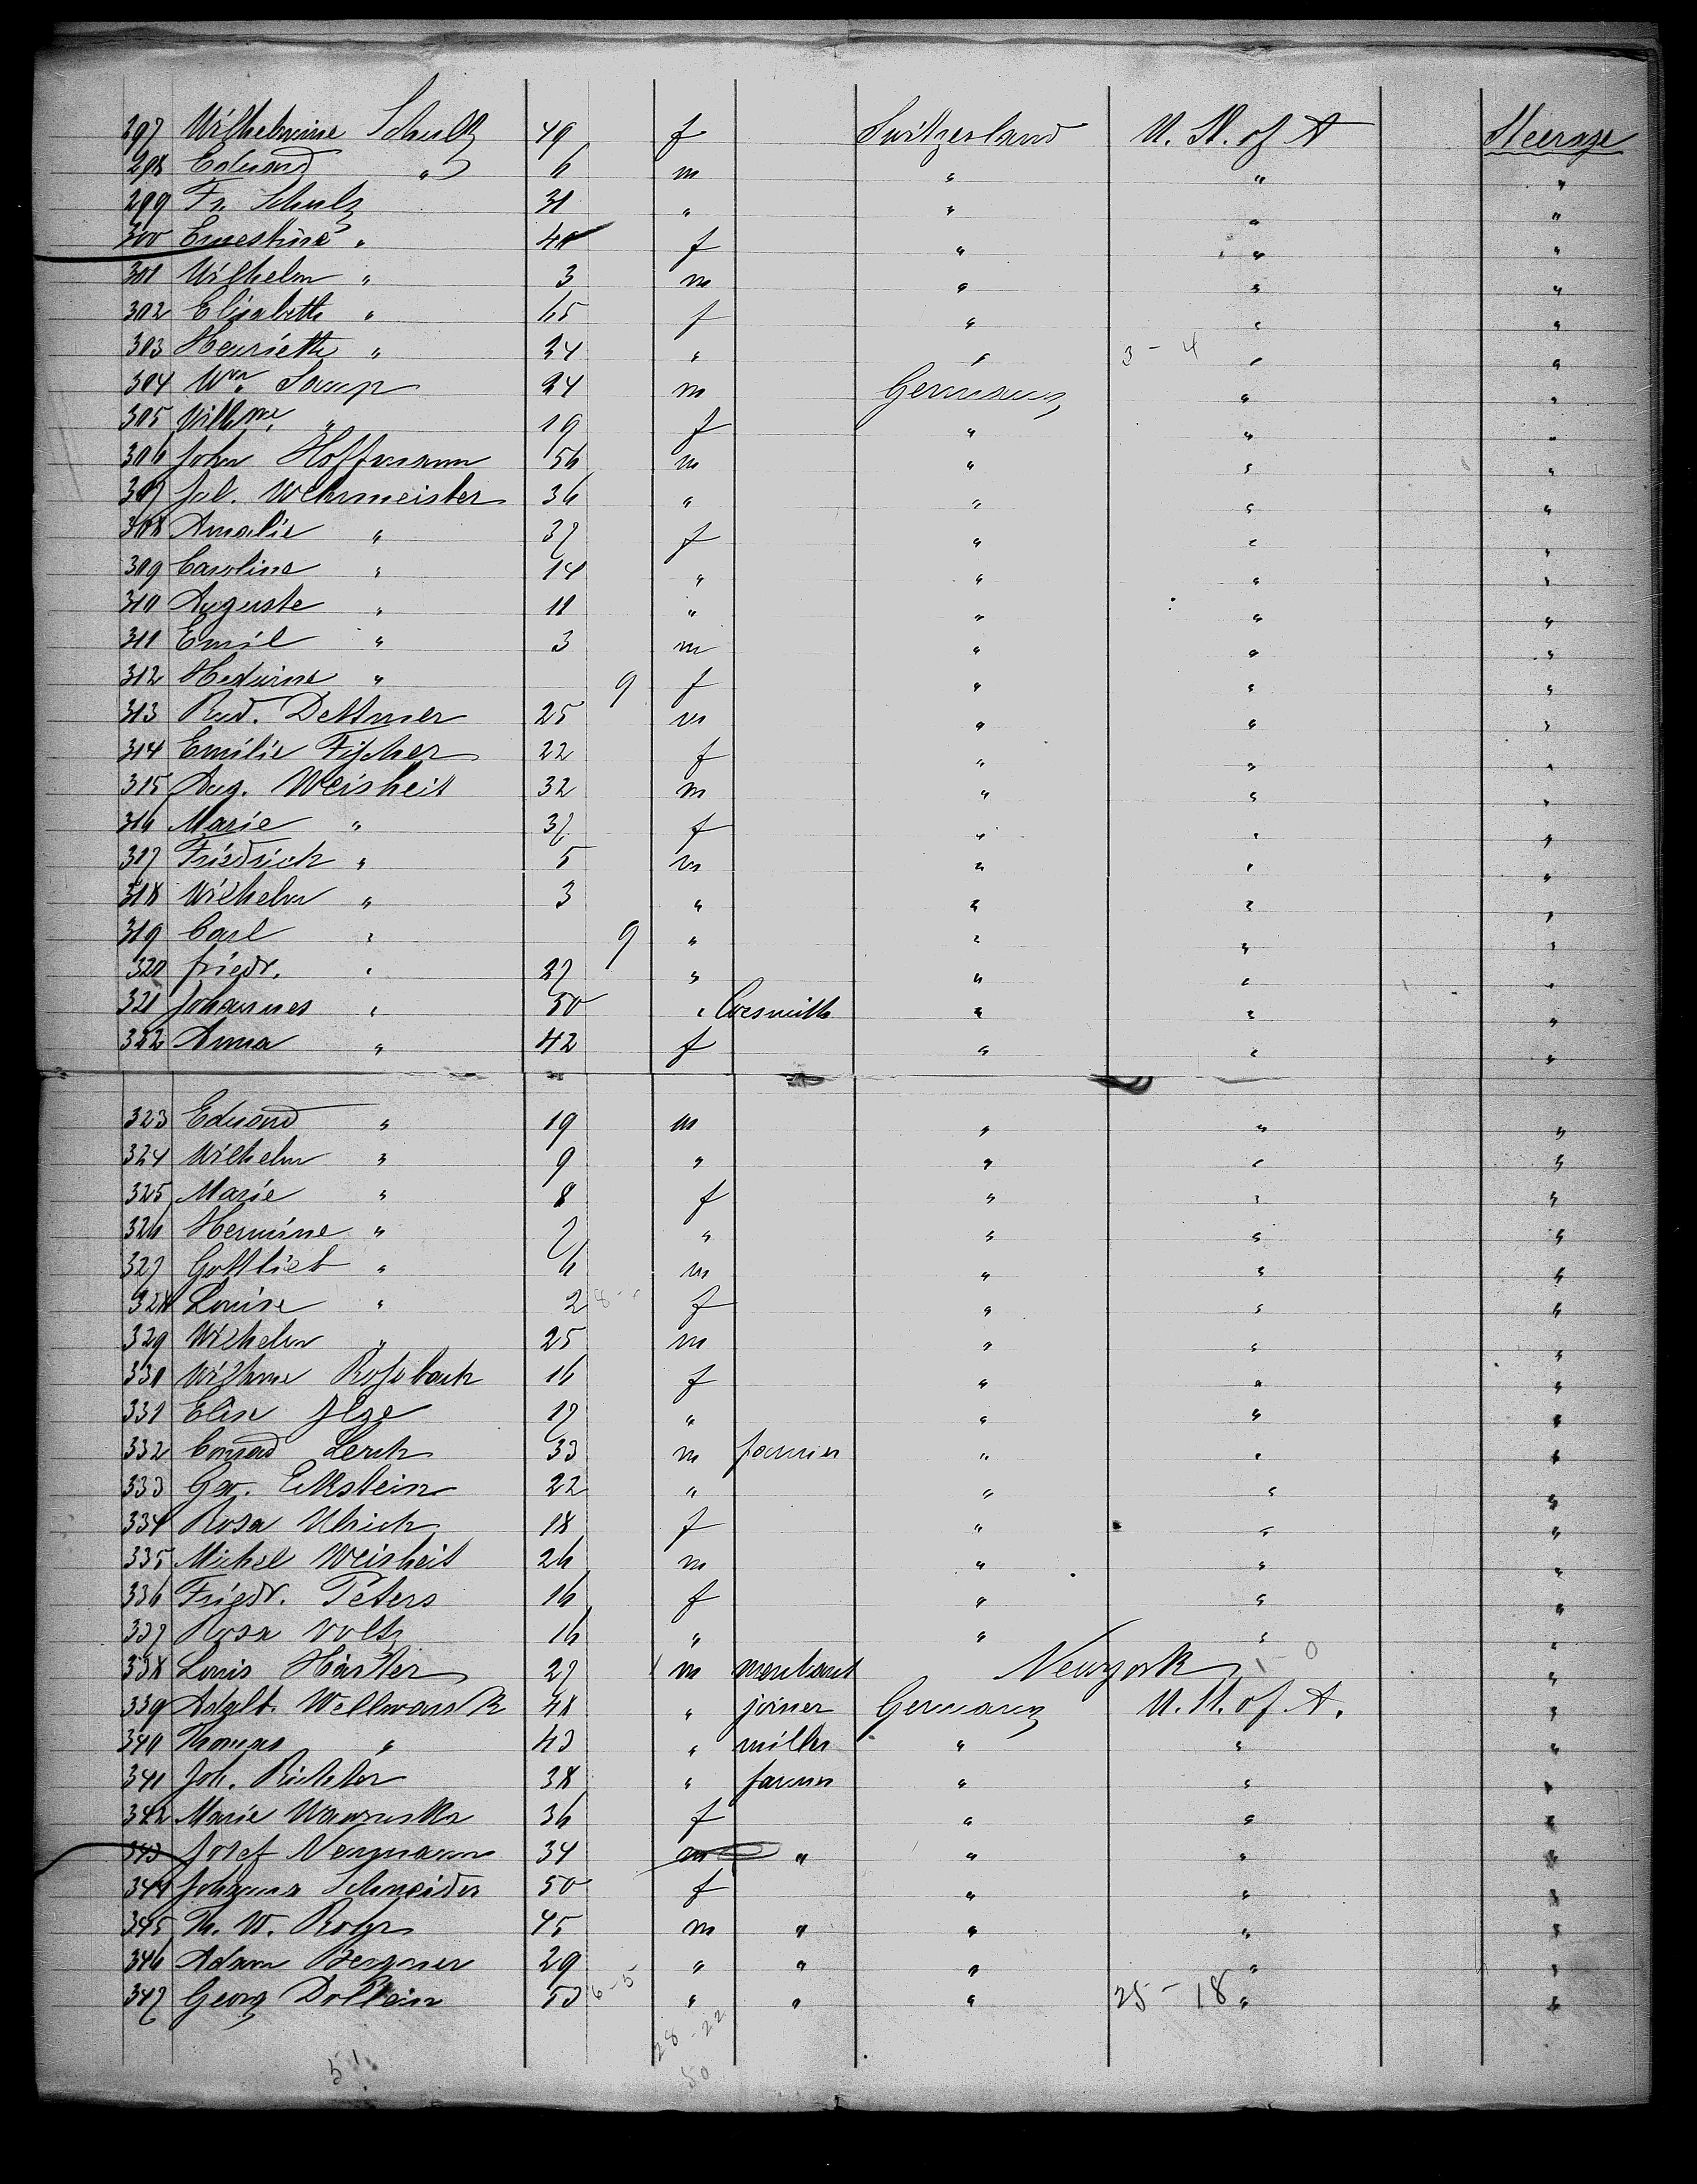 297 Wilhelmine Schultz 49 f Switzerland U. St. of A Steerage
298 Eduard " 6 m " " "
299 Fr. Schulz 31 " " " "
300 Ernestine " f " " "
301 Wilhelm " 3 m " " "
302 Elisabeth " 65 f " " "
303 Henriette " 24 " " 3 - 4 " "
304 Wm Lamp 24 m Germany " "
305 Wilhme " 19 f " " "
306 John Hoffmann 56 m " " "
307 Jul. Wehrmeister 36 " " " "
308 Amalie " 37 f " " "
309 Caroline " 14 " " " "
310 Auguste " 11 " " " "
311 Emil " 3 m " " "
312 Hedwine " 9 f " " "
313 Rud. Dettmer 25 m " " "
314 Emilie Fischer 22 f " " "
315 Aug. Weisheit 32 m " " "
316 Marie " 37 f " " "
317 Friedrich " 5 m " " "
318 Wilhelm " 3 " " " "
319 Carl " 9 " " " "
320 friedr. " 27 " " " "
321 Johannes " 50 " " " "
322 Anna " 42 f " " "
323 Eduard " 19 m " " "
324 Wilhelm " 9 " " " "
325 Marie " 8 f " " "
326 Hermine " 7 " " " "
327 Gottlieb " 6 m " " "
328 Louise " 2 f " " "
329 Wilhelm " 25 m " " "
330 Wilhme Rossbach 16 f " " "
331 Elise Ilge 17 " " " "
332 Conrad Lerch 33 m farmer " " "
333 Geo. Eckstein 22 " " " "
334 Rosa Ulrich 18 f " " "
335 Michel Weisheit 26 m " " "
336 Friedr. Peters 16 f " " "
337 Rosa Voltz 16 " " " "
338 Louis Härtler 27 m merchant Newyork 1 - 0 "
339 Adalb. 48 " joiner Germany U. St. of A. "
340 Thomas " 43 " miller " " "
341 Joh. Richter 38 " farmer " " "
342 Marie Wawruska 36 f " " "
343 Josef Neumann 34 m " " " "
344 Johanna Schneider 50 f " " "
345 Th. W. Rohr 45 m " " " "
346 Adam Bergner 29 " " " " "
347 Georg Dollein 53 6-5 " " " 25 - 18 " "
28 - 22
51 50